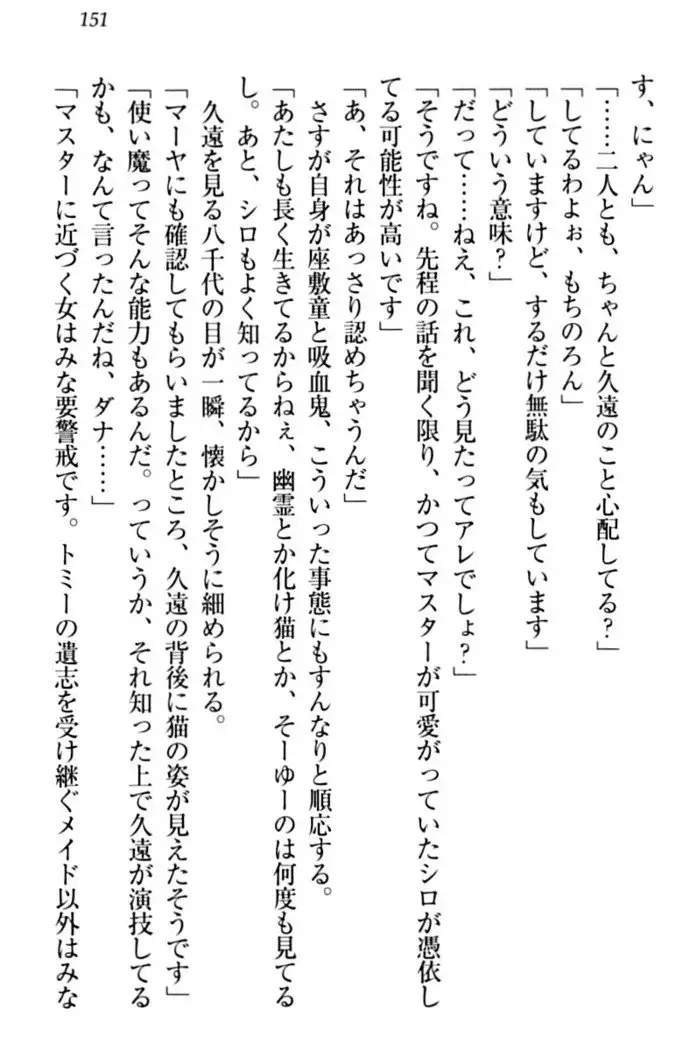 151
す、にゃん」
「……二人とも、ちゃんと久遠のこと心配してる？」
「してるわよぉ、もちのろん」
「していますけど、するだけ無駄の気もしています」
「どういう意味？」
「だって……ねえ、これ、どう見たってアレでしょ？」
「そうですね。先程の話を聞く限り、かつてマスターが可愛がっていたシロが憑依し
てる可能性が高いです」
「あ、それはあっさり認めちゃうんだ」
さすが自身が座敷童と吸血鬼、こういった事態にもすんなりと順応する。
「あたしも長く生きてるからねぇ、幽霊とか化け猫とか、そーゆーのは何度も見てる
し。あと、シロもよく知ってるから」
久遠を見る八千代の目が一瞬、懐かしそうに細められる。
「マーヤにも確認してもらいましたところ、久遠の背後に猫の姿が見えたそうです」
「使い魔ってそんな能力もあるんだ。っていうか、それ知った上で久遠が演技してる
かも、なんて言ったんだね、ダナ……」
「マスターに近づく女はみな要警戒です。トミーの遺志を受け継ぐメイド以外はみな